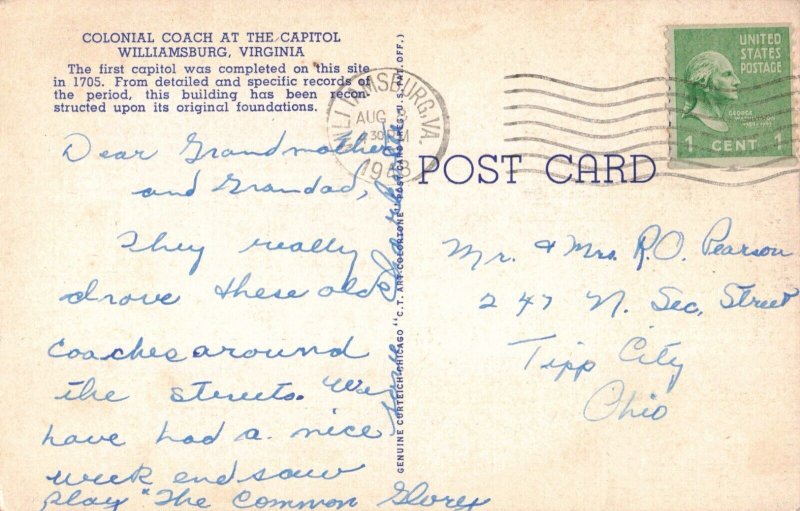 COLONIAL COACH AT THE CAPITOL
WILLIAMSBURG, VIRGINIA
The first capitol was completed on this site
in 1705. From detailed and specific records of
the period, this building has been recon-
structed upon its original foundations.
WILLIAMSBURG, VA.
AUG
30 PM
1948
UNITED
STATES
POSTAGE
GEORGE
WASHINGTON
1 CENT 1
POST CARD
GENUINE CURTEICH-CHICAGO "C.T. ART-COLORTONE" POST CARD (REG. U.S. PAT. OFF.)
Dear Grandmother
and Grandad,
They really
drove these old
coaches around
the streets. We
have had a nice
week end saw
play "The Common Glory
Love
Mr. & Mrs. R.O. Pearson
247 N. Sec. Street
Tipp City
Ohio